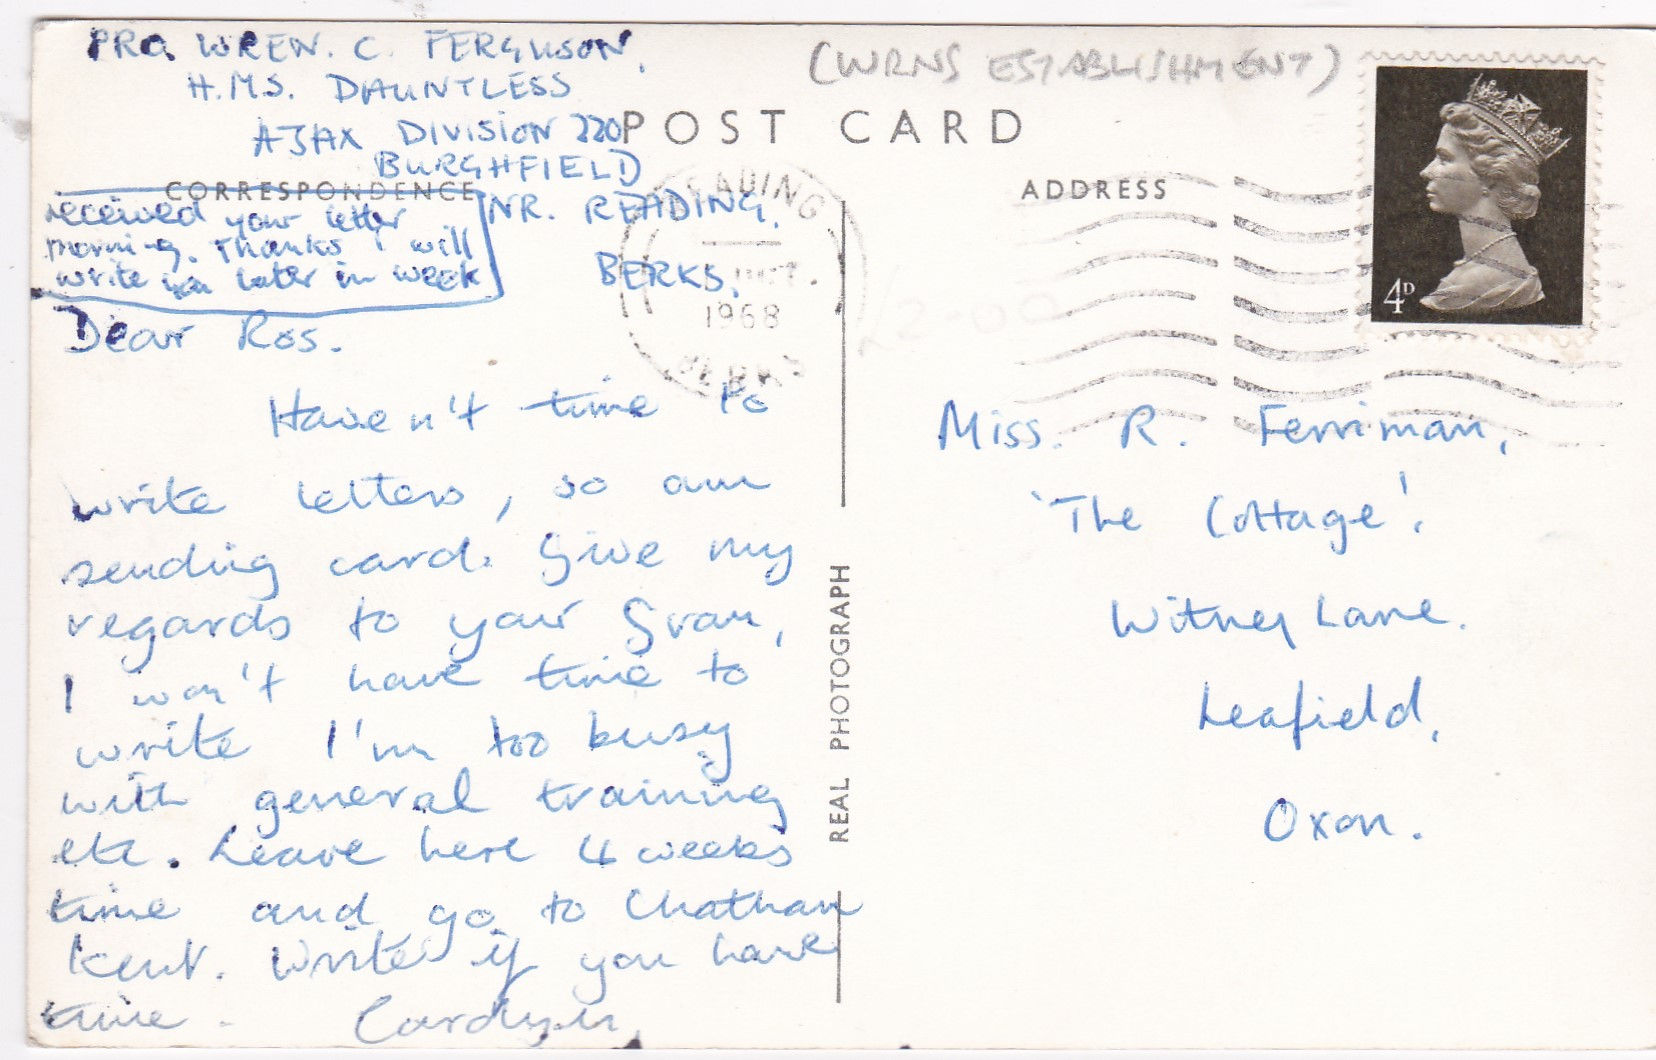 PRO. WREN. C. FERGUSON,
H.M.S. DAUNTLESS
AJAX DIVISION 220
BURGHFIELD
NR. READING.
BERKS.
(WRNS ESTABLISHMENT)
POST CARD
CORRESPONDENCE
ADDRESS
received your letter
morning. Thanks I will
write you later in week
READING
1968
BERKS
£2-00
4D
Dear Ros.
Haven't time to
write letters, so am
sending card. Give my
regards to your Gran,
I won't have time to
write I'm too busy
with general training
etc. Leave here 4 weeks
time and go to Chatham
Kent. Write if you have
time. Carolyn,
REAL PHOTOGRAPH
Miss. R. Ferriman,
'The Cottage'.
Witney Lane.
Leafield,
Oxon.